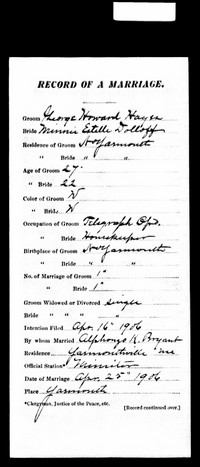 RECORD OF A MARRIAGE.
Groom George Howard Hayes
Bride Minnie Estelle Dolloff
Residence of Groom No Yarmouth
" Bride " "
Age of Groom 27
" Bride 22
Color of Groom W
" Bride W
Occupation of Groom Telegraph Opr.
" Bride Housekeeper
Birthplace of Groom No Yarmouth
" Bride " "
No. of Marriage of Groom 1st
" Bride 1st
Groom Widowed or Divorced single
Bride " " "
Intention Filed Apr. 16th 1906
By whom Married Alphonzo K. Bryant
Residence Yarmouthville Me
Official Station* Minister
Date of Marriage Apr. 25th 1906
Place Yarmouth
*Clergyman, Justice of the Peace, etc. [Record continued over.]